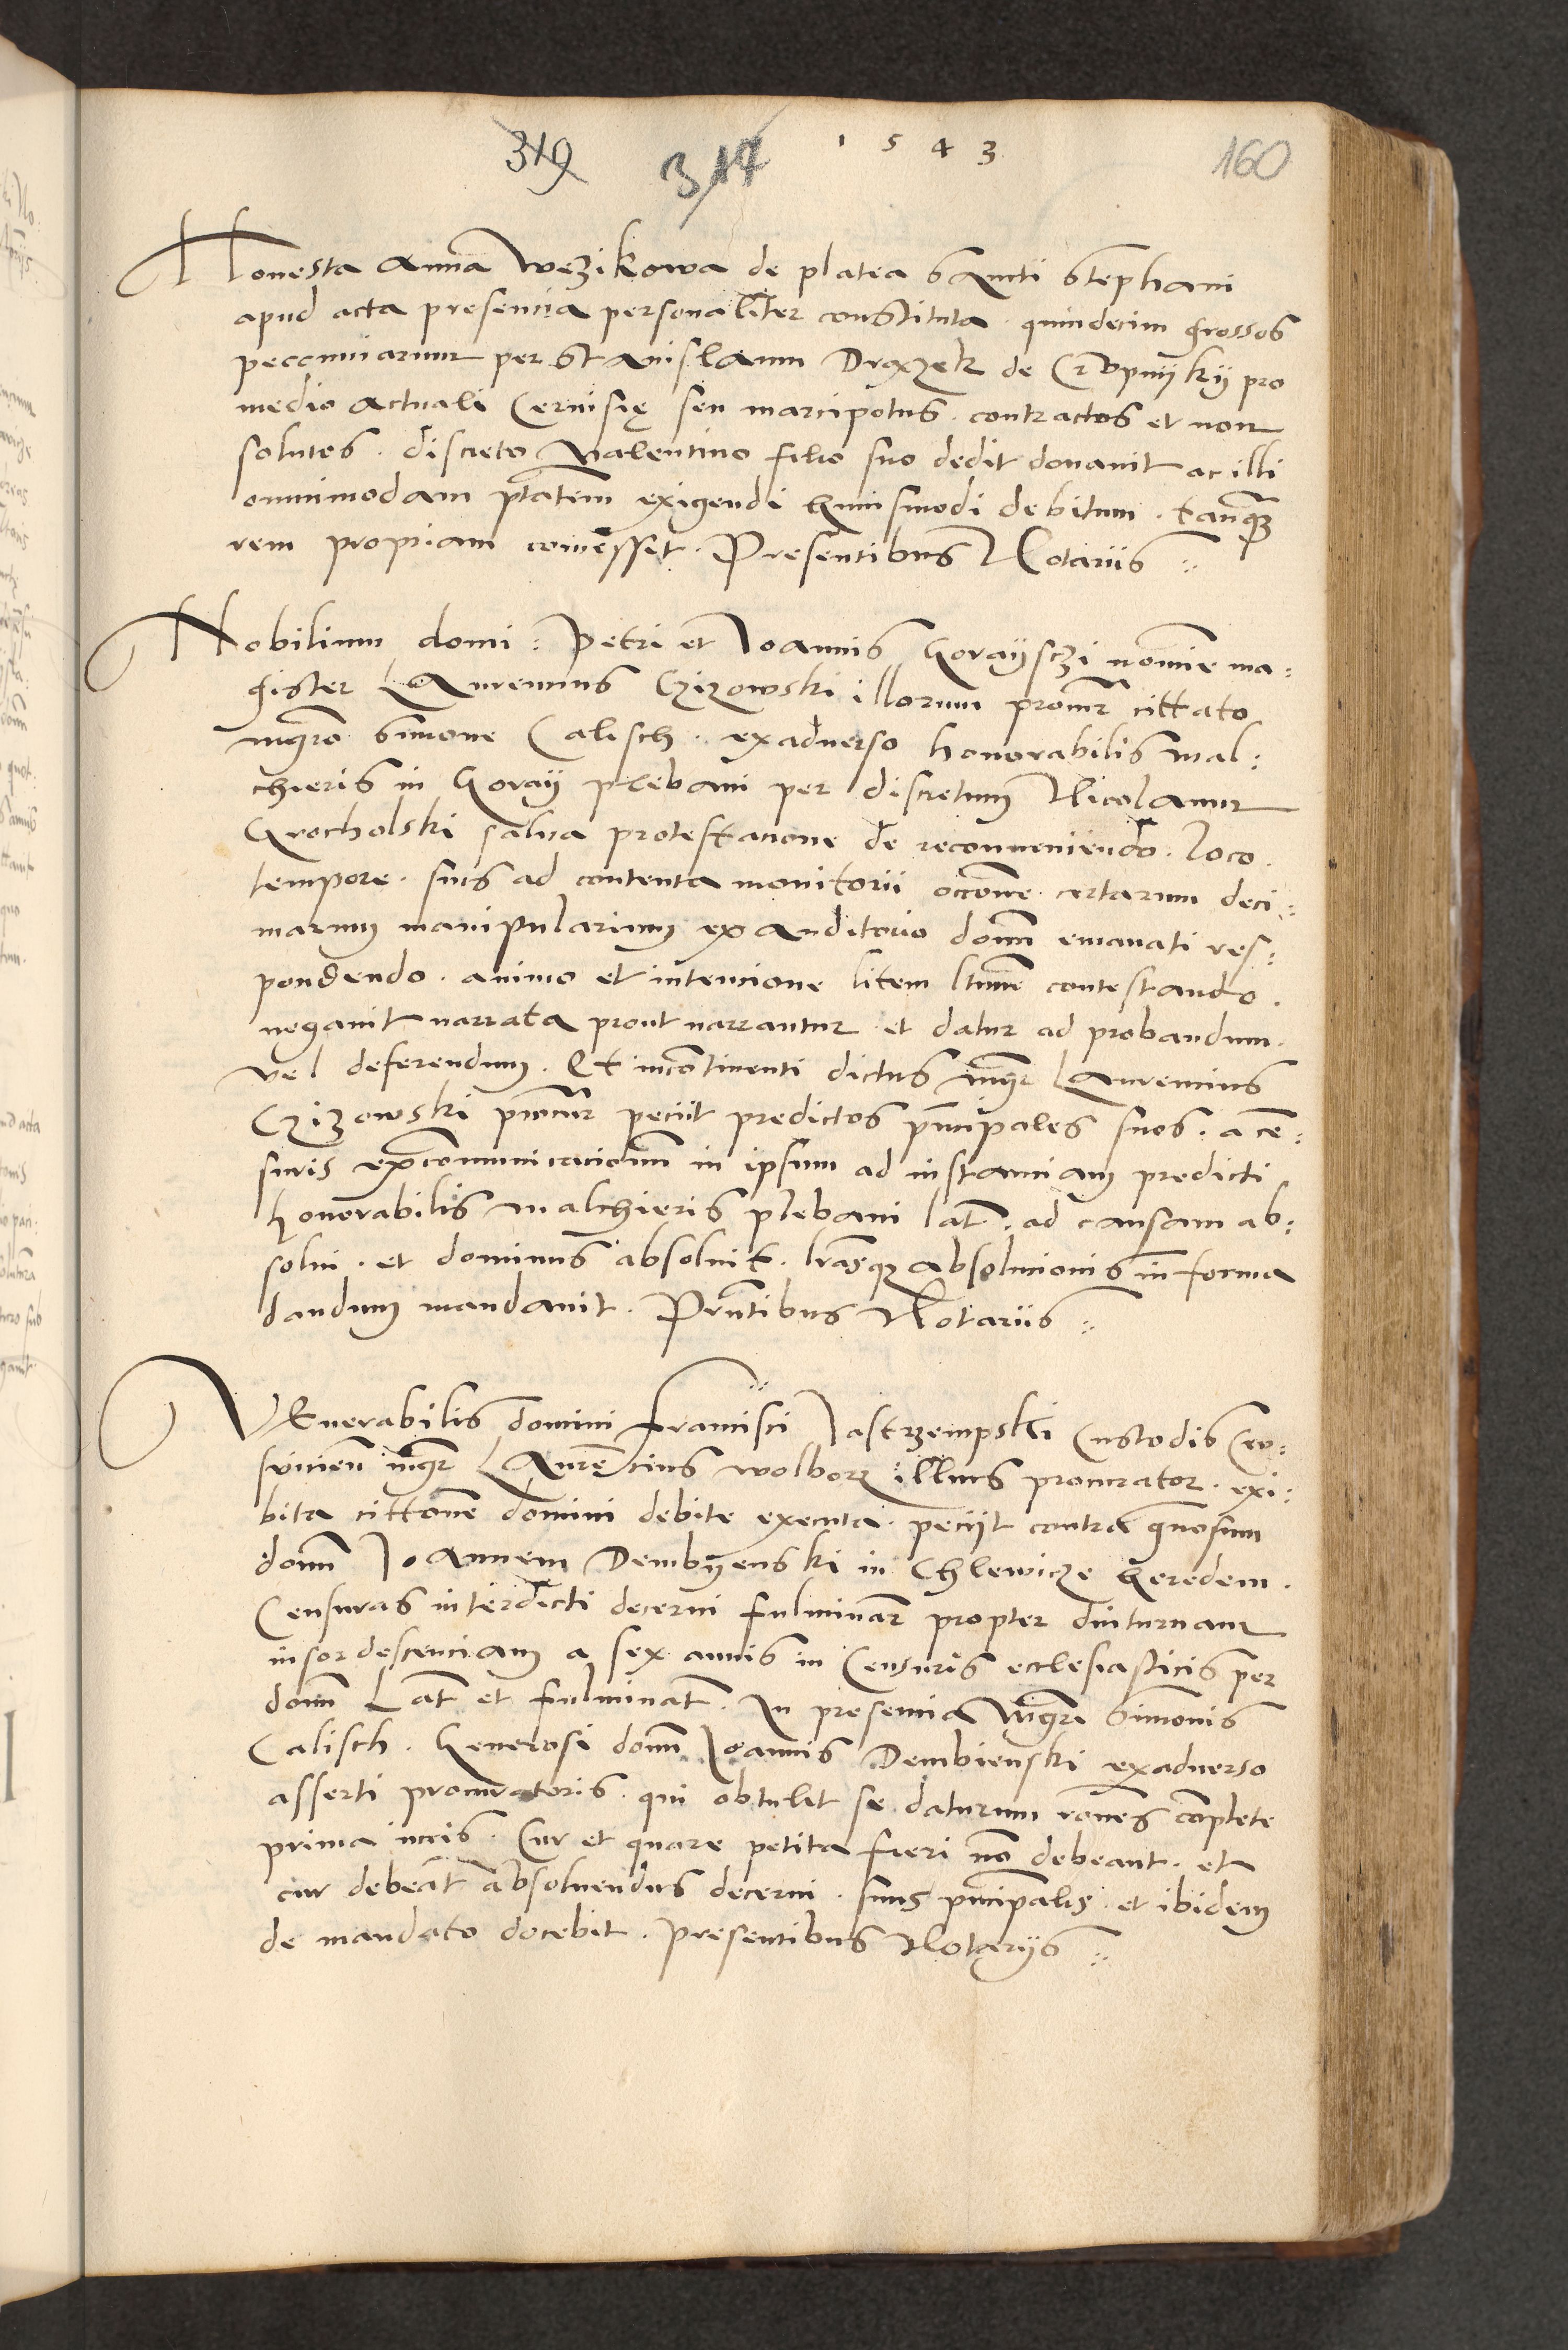 319 317 1543 160
Honesta Anna Wezikowa de platea Sancti Stephani
apud acta presencia personaliter constituta. quindecim grossos
peccuniarum per Stanislaum Droxzek de Cropniky pro
medio actuali Cervisię seu marcipotus. contractos et non
solutos. discreto Valentino filio suo dedit donavit ac illi
omnimodam ptatem exigendi huiusmodi debitum. tanq
rem propriam commisset. Presentibus Notariis
Nobilium domi: Petri et Joannis Gorayszi nomine ma:
gister Laurencius Czizowski illorum procur cittato
mgro Simone Calisch. exadverso honorabilis Mal:
chieris in Goray plebani per discretum Nicolaum
Grocholski salva protestacione de reconveniendo. loco.
tempore. suis ad contenta monitorii occone certarum deci:
marum manipularium ex auditorio domi emanati res:
pondendo. animo et intencione litem ltime contestando.
negavit narrata prout narrantur et datur ad probandum.
vel deferendum. Et incontinenti dictus mgr Laurencius
Czizowski procur peciit predictos principales suos. a cen:
suris excomunicacionum in ipsum ad instanciam predicti
honorabilis Malchieris plebani lat. ad causam ab:
solvi. et dominus absolvit. lrasq absolucionis in forma
dandum mandavit. Prntibus Notariis
Venerabilis domini Francisci Jastrzempski Custodis Cru:
svicien mgr Laurencius Wolborz illius procurator. exi:
bita cittone domini debite executa. peciit contra gnosum
domi Joannem Dembyenski in Chlewicze heredem.
Censuras interdicti decerni fulminar propter diuturnam
insordescenciam a sex annis in Censuris ecclesiasticis per
domi Lat et fulminat. In presencia Mgri Simonis
Calisch. Generosi domi Joannis Dembienski exadverso
asserti procuratoris. qui obtulit se daturum rones complete
prima iuris. Cur et quare petita fieri non debeant. et
cur debeat absolvendus decerni. suus principalis. et ibidem
de mandato docebit. Presentibus Notariis